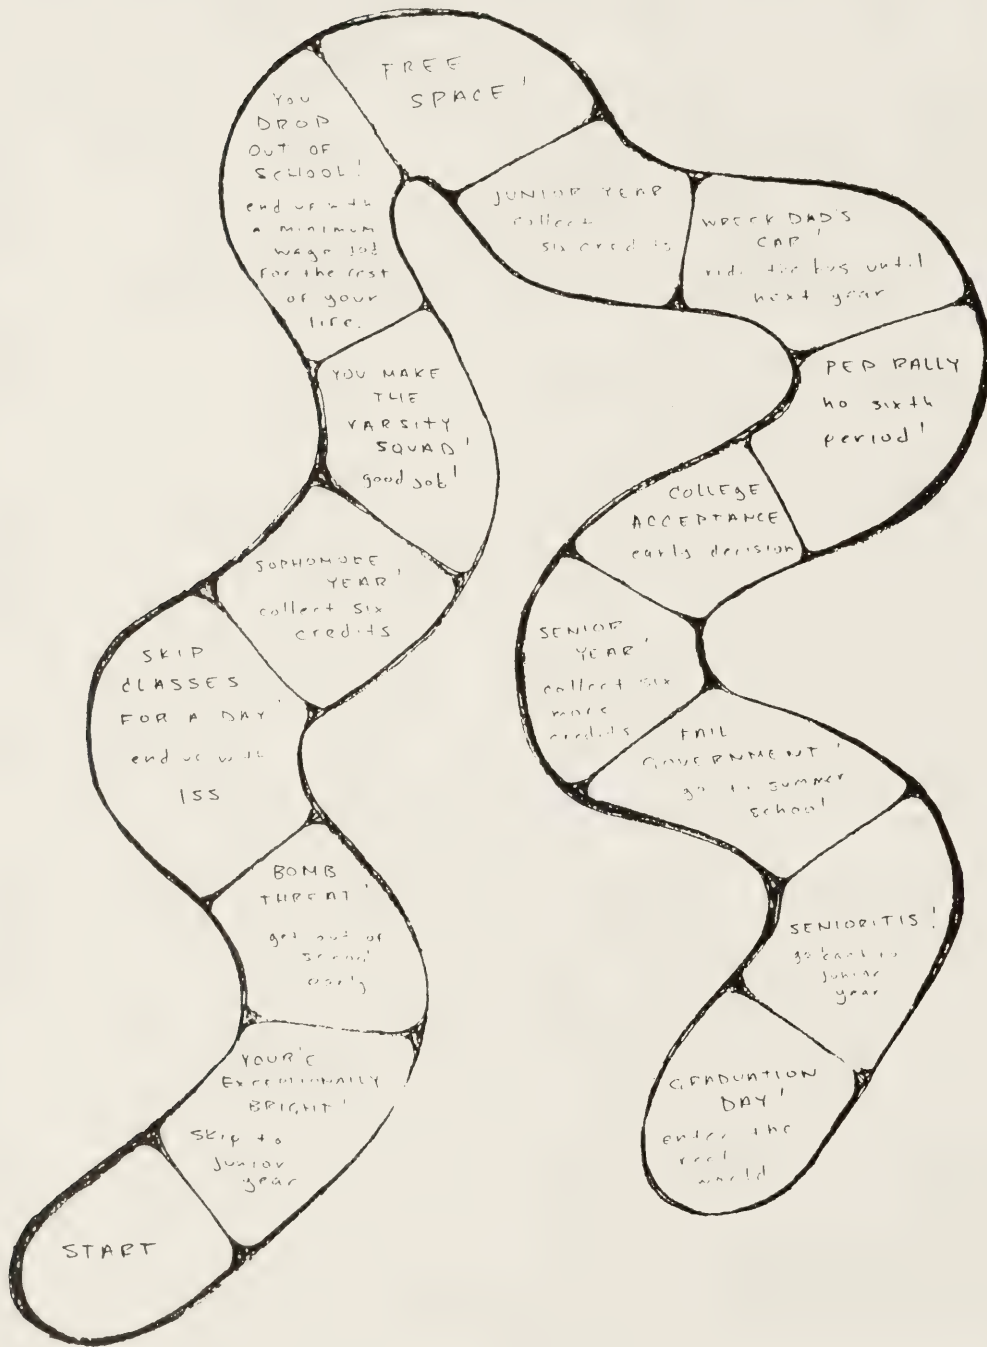 START
YOUR'E
EXCEPTIONALLY
BRIGHT!
Skip to
junior
year
BOMB
THREAT!
get out of
school
early
SKIP
CLASSES
FOR A DAY!
end up with
ISS
SOPHOMORE
YEAR!
collect six
credits
YOU MAKE
THE
VARSITY
SQUAD!
good job!
YOU
DROP
OUT OF
SCHOOL!
end up with
a minimum
wage job
for the rest
of your
life.
FREE
SPACE!
JUNIOR YEAR
collect
six credits
WRECK DAD'S
CAR!
ride the bus until
next year
PEP RALLY
no sixth
period!
COLLEGE
ACCEPTANCE
early decision
SENIOR
YEAR!
collect six
more
credits
FAIL
GOVERNMENT!
go to summer
school
SENIORITIS!
go back to
junior
year
GRADUATION
DAY!
enter the
real
world